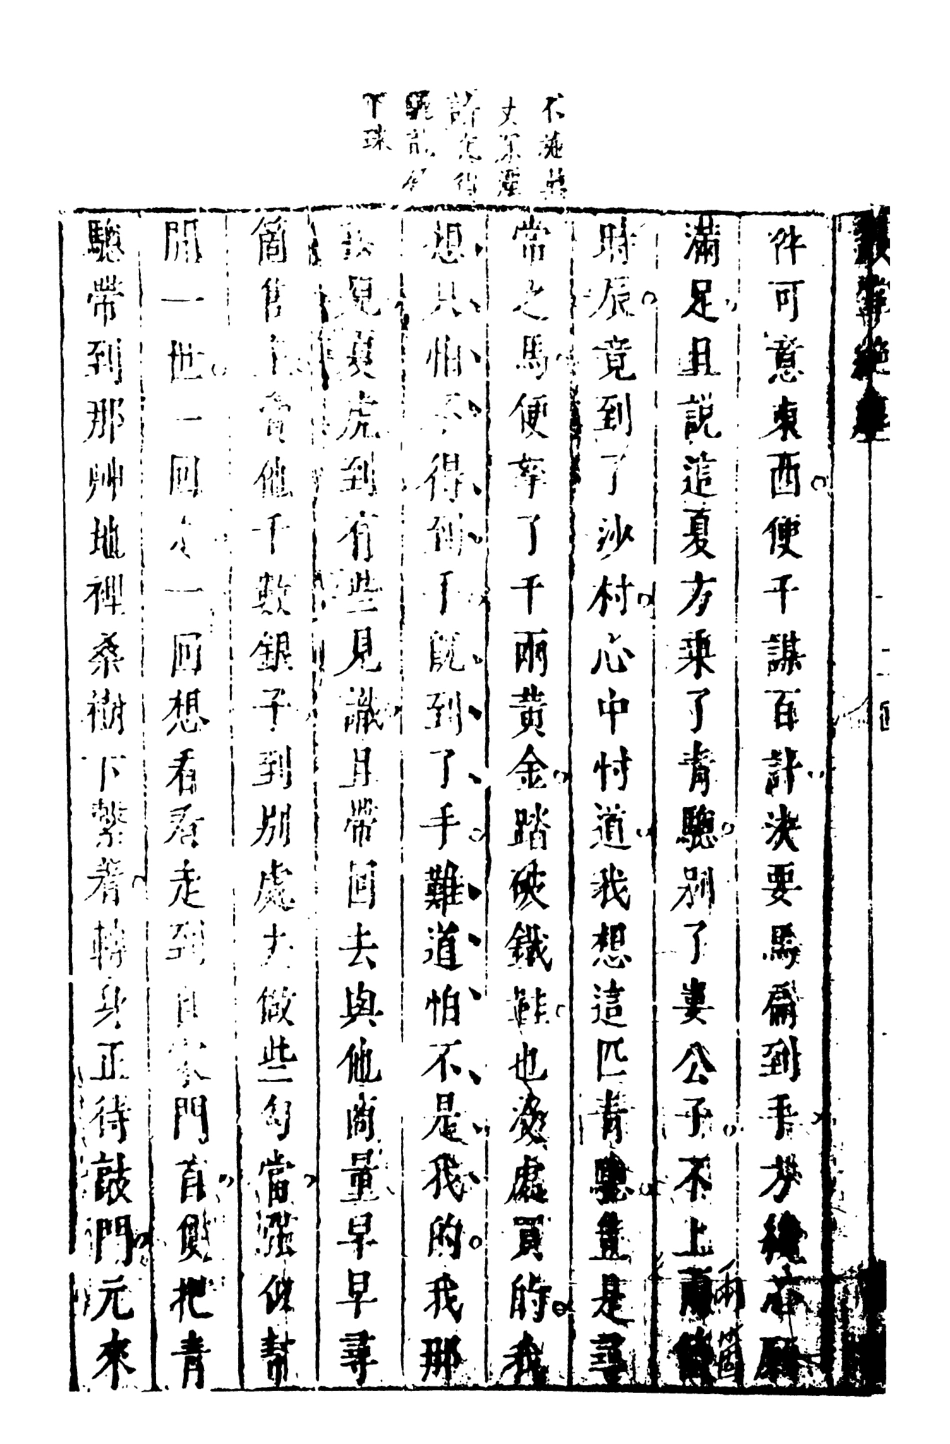 件可意東西便千謀百計決要馬騙到手方纔心願
滿足且説這夏方乘了青驄別了婁公子不上兩箇
時辰竟到了沙村心中忖道我想這匹青驄豈是尋
常之馬便牽了千兩黃金踏破鐵鞋也沒處買的我
想只怕不得到手既到了手難道怕不是我的我那
見夏虎到有些見識且帶回去與他商量早早尋
箇售主賣他千數銀子到別處去做些勾當強似幇
閒一世一回走一回想看看走到自家門首側把青
驄帶到那艸地裡桑樹下繫着轉身正待敲門元來
兩箇